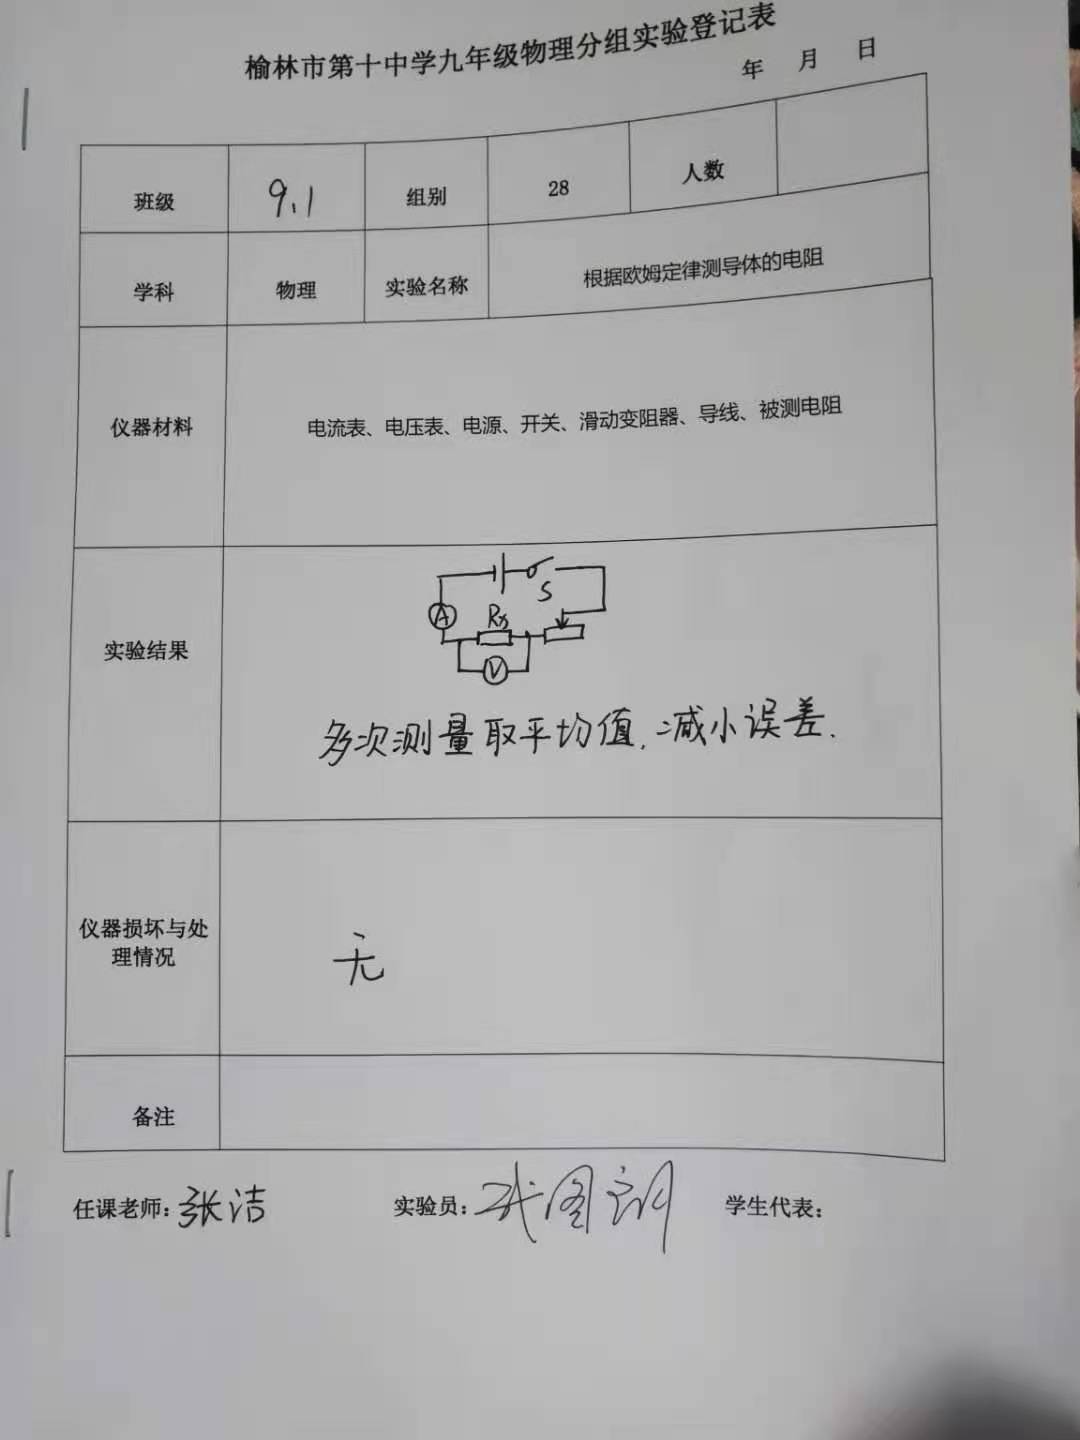 榆林市第十中学九年级物理分组实验登记表
年 月 日
班级 9.1 组别 28 人数
学科 物理 实验名称 根据欧姆定律测导体的电阻
仪器材料 电流表、电压表、电源、开关、滑动变阻器、导线、被测电阻
S
A Rx
V
实验结果
多次测量取平均值,减小误差.
仪器损坏与处
理情况
无
备注
任课老师: 张洁 实验员: 学生代表: